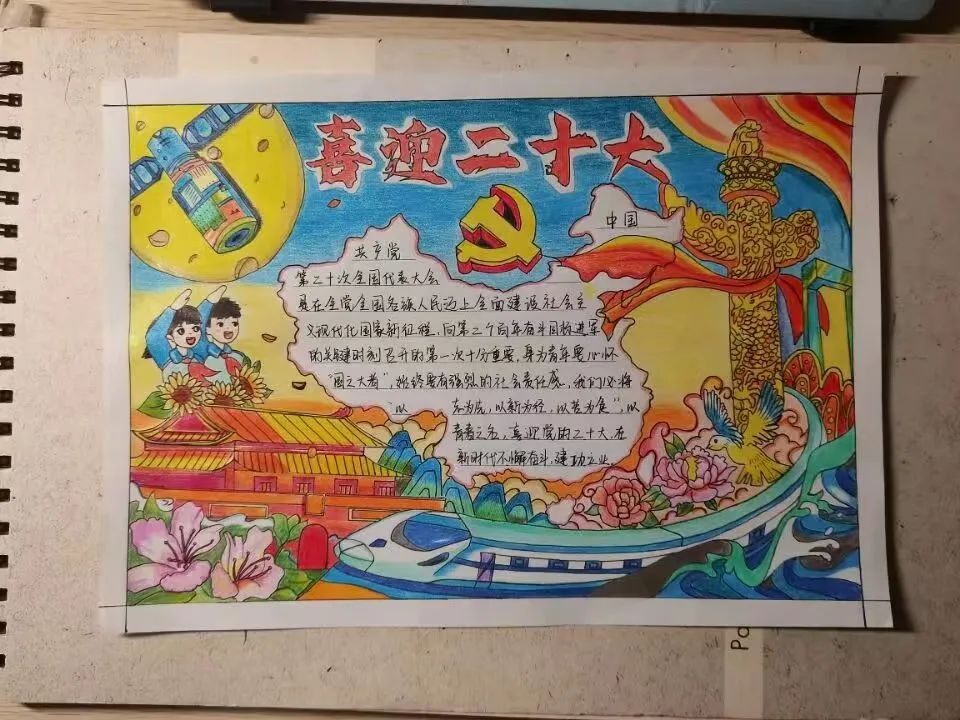 喜迎二十大
中国
共产党
第二十次全国代表大会
是在全党全国各族人民迈上全面建设社会主
义现代化国家新征程、向第二个百年奋斗目标进军
的关键时刻召开的第一次十分重要，身为青年要心怀
“国之大者”，始终要有强烈的社会责任感，我们必将
“以 东为点，以新为径，以苦为食”，以
青春之名，喜迎党的二十大，在
新时代不懈奋斗、建功立业。
Po